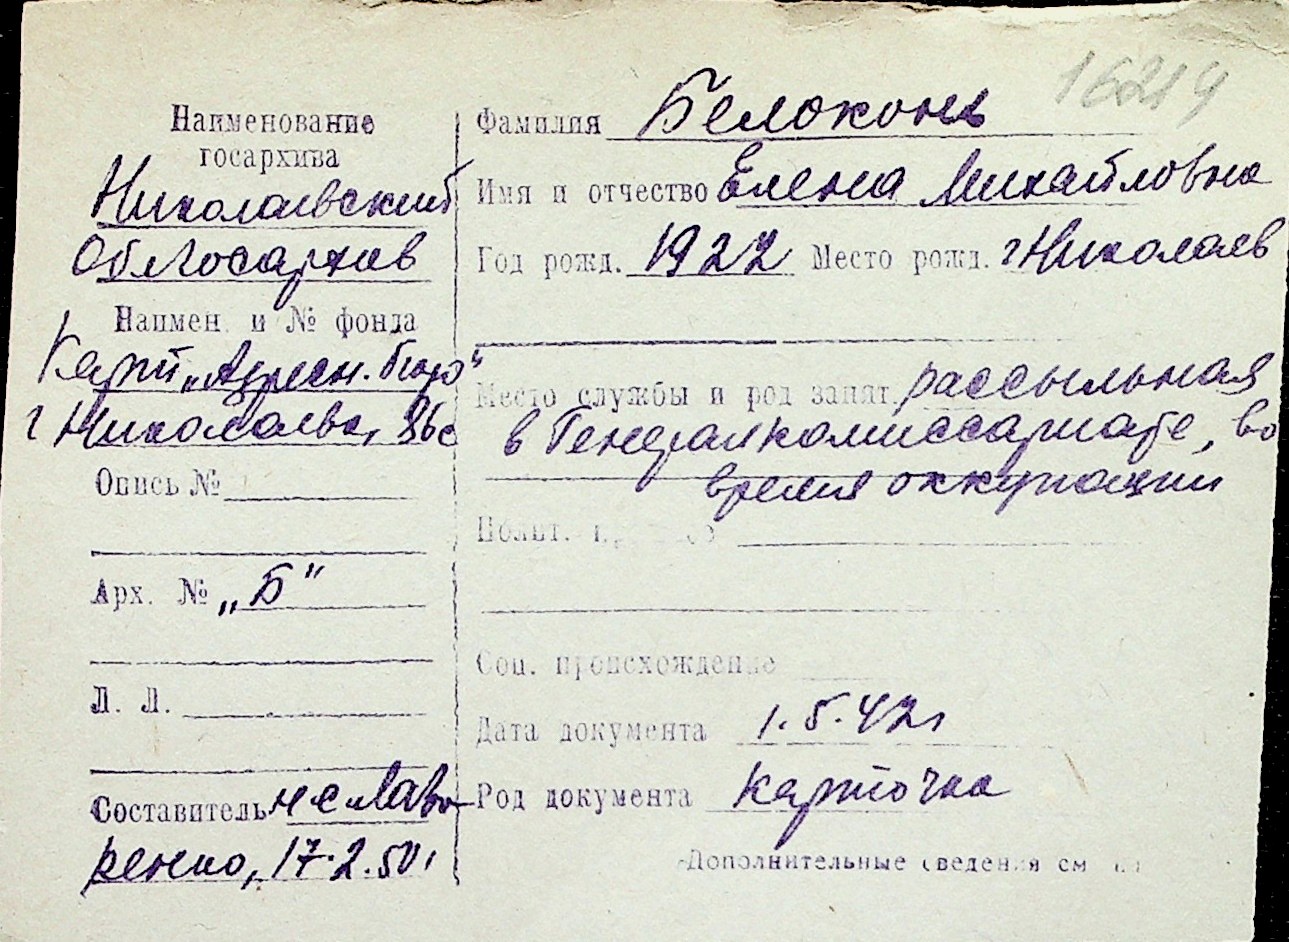 16214
Наименование
госархива
Николаевский
Облгосархив
Наимен. и № фонда
Карт. „Адресн. бюро“
г Николаева,
Опись №
Арх. № „Б“
Л. Л.
Составитель Лавре
ренко, 17.2.50г
Фамилия Белоконь
Имя и отчество Елена Михайловна
Год рожд. 1922 Место рожд. г Николаев
Место службы и род занят. рассыльная
в Генералкомиссариате, во
время оккупации
Полит.
Соц. происхождение
Дата документа 1.5.42г
Род документа карточка
Дополнительные сведения см